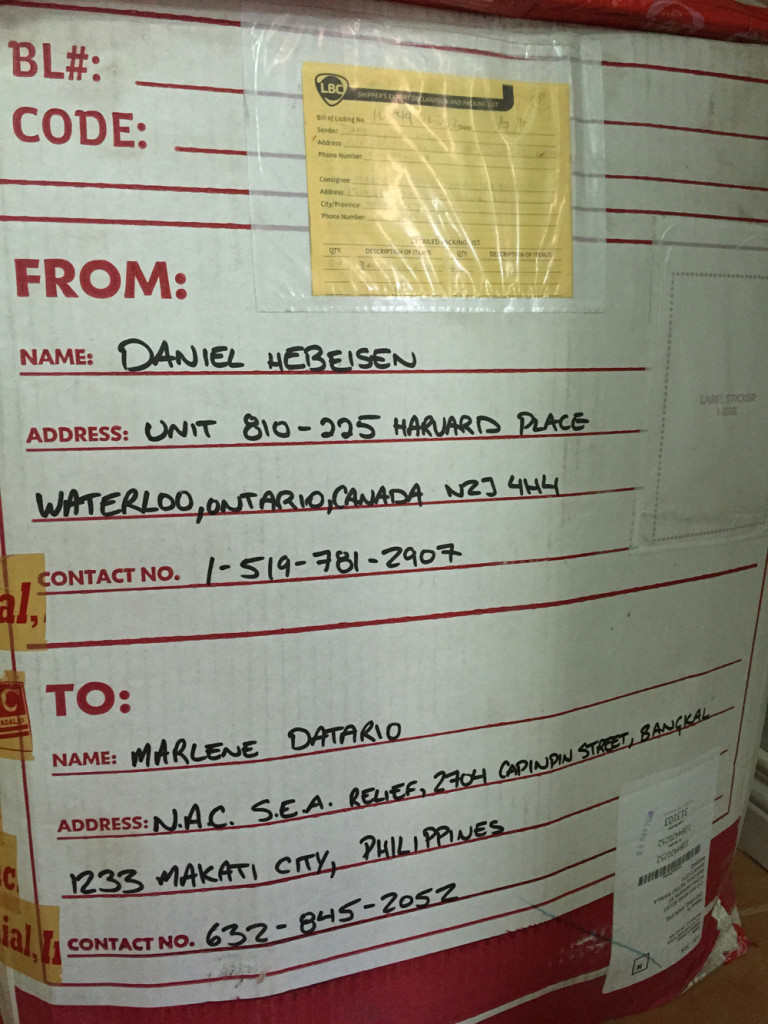 BL#:
CODE:
LBC
SHIPPER'S EXPORT DECLARATION AND PACKING LIST
Bill of Lading No.
Sender
Address
Phone Number
Consignee
Address
City/Province
Phone Number
DETAILED PACKING LIST
QTY. DESCRIPTION OF ITEMS QTY. DESCRIPTION OF ITEMS
FROM:
NAME: DANIEL HEBEISEN
ADDRESS: UNIT 810-225 HARVARD PLACE
WATERLOO, ONTARIO, CANADA N2J 4H4
CONTACT NO. 1-519-781-2907
LABEL STICKER
HERE
al,
TO:
C
NAME: MARLENE DATARIO
ADDRESS: N.A.C. S.E.A. RELIEF, 2704 CAPINPIN STREET, BANGKAL
1233 MAKATI CITY, PHILIPPINES
CONTACT NO. 632-845-2052
313103
N